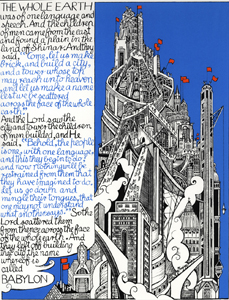 THE WHOLE EARTH
was of one language and
speech. And the children
of men came from the east
and found a plain in the
land of Shinar. And they
said, "Come, let us make
brick, and build a city,
and a tower whose top
may reach unto heaven
and let us make a name
lest we be scattered
across the face of the whole
earth."
And the Lord saw the
city and tower the children
of men builded, and He
said, "Behold, the people
is one, with one language
and this they begin to do:
and now nothing will be
restrained from them that
they have imagined to do.
let us go down and
mingle their tongues, that
one may not understand
what another says." So the
Lord scattered them
from thence across the face
of the whole earth. And
they left off building
the city the name
whereof is
called
BABYLON